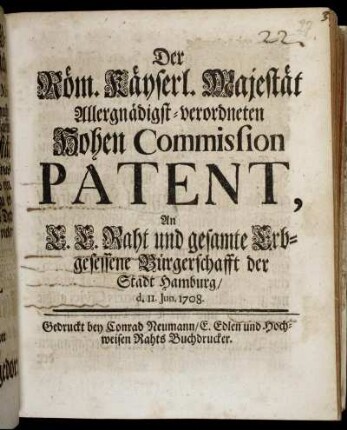 22.
Der
Röm. Käyserl. Majestät
Allergnädigst-verordneten
Hohen Commission
PATENT,
An
E. E. Raht und gesamte Erb-
gesessene Bürgerschafft der
Stadt Hamburg/
d. 11. Jun. 1708.
Gedruckt bey Conrad Neumann/ E. Edlen und Hoch-
weisen Rahts Buchdrucker.